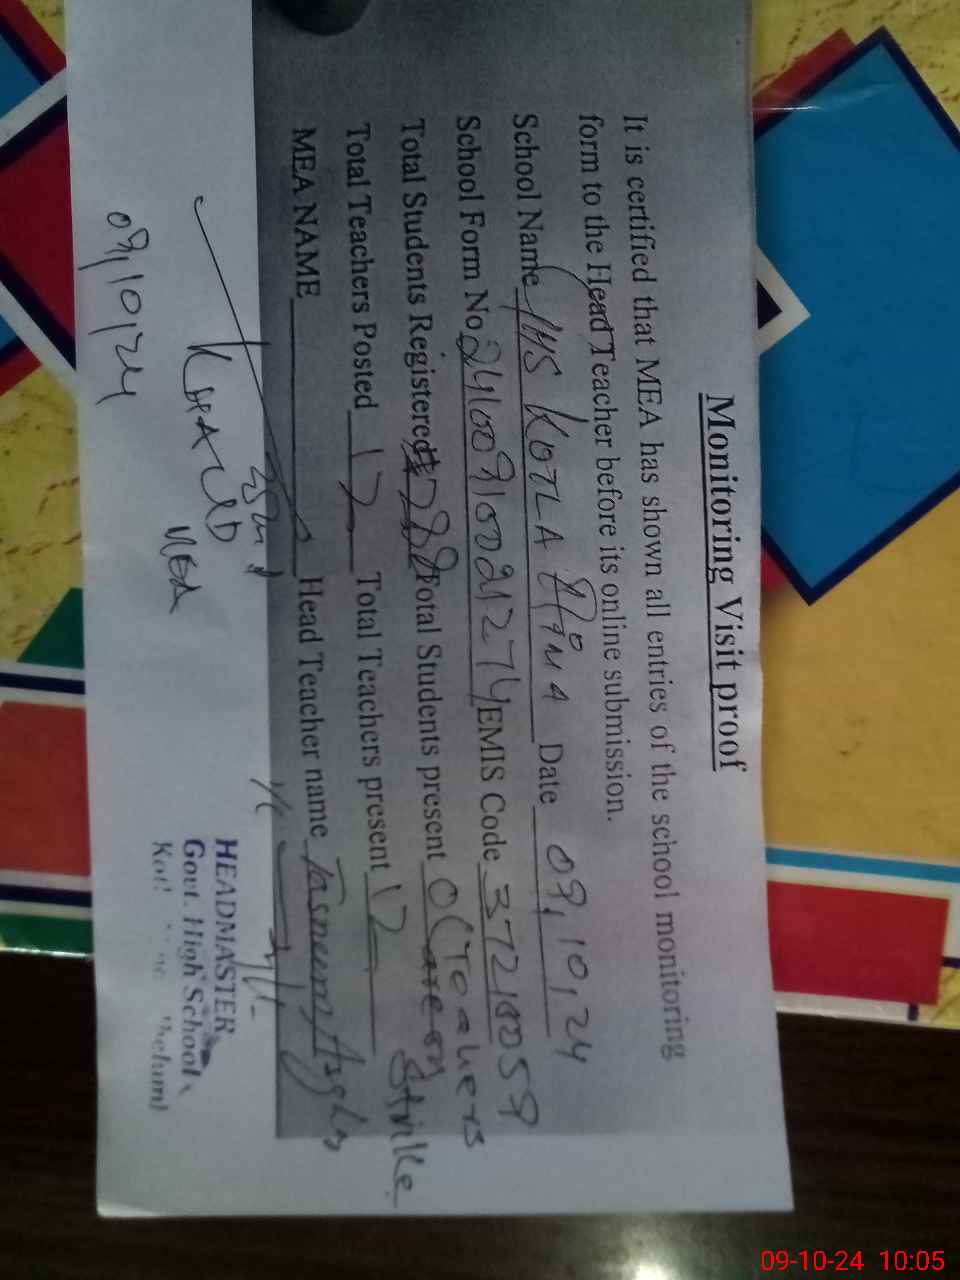 Monitoring Visit proof
It is certified that MEA has shown all entries of the school monitoring
form to the Head Teacher before its online submission.
School Name GHS KOTLA Date 09,10,24
School Form No 24100910021274 EMIS Code 37210059
Total Students Registered Total Students present 0 (Teachers are on Strike
Total Teachers Posted 17 Total Teachers present 12
MEA NAME Head Teacher name Tasneem
MEA
09,10,24
HEADMASTER
Govt. High School
09-10-24 10:05